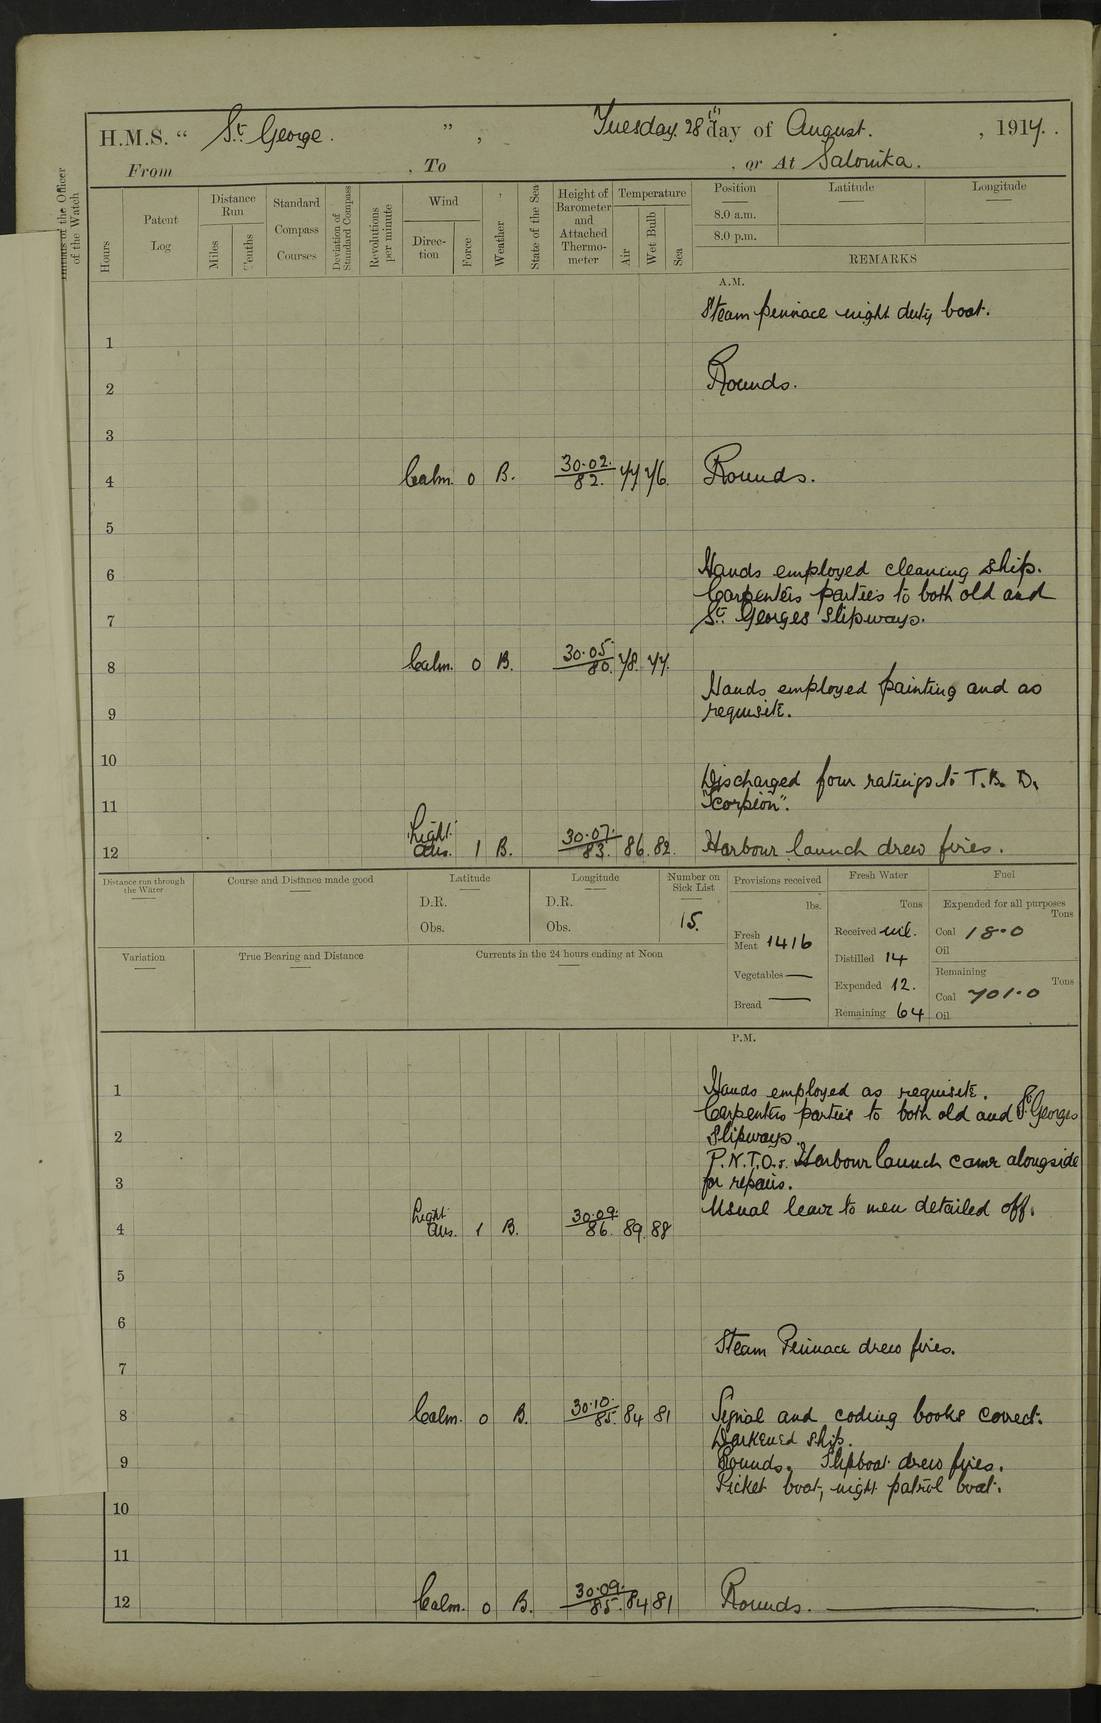 H.M.S. “ St. George. ” , Tuesday. 28th day of August. , 1917. .
From , To , or At Salonika.
Initials of the Officer of the Watch
Hours
Patent Log
Distance Run
Miles
Tenths
Standard Compass Courses
Deviation of Standard Compass
Revolutions per minute
Wind
Direction
Force
Weather
State of the Sea
Height of Barometer and Attached Thermometer
Temperature
Air
Wet Bulb
Sea
Position
Latitude
Longitude
8.0 a.m.
8.0 p.m.
REMARKS
A.M.
Steam pinnace night duty boat.
1
2 Rounds.
3
4 Calm. 0 B. 30.02. 82. 77 76 Rounds.
5
6 Hands employed cleaning ship.
Carpenters parties to both old and
7 St. Georges slipways.
8 Calm. 0 B. 30.05. 80. 78. 77.
Hands employed painting and as
9 requisite.
10
Discharged four ratings to T.B.D.
11 "Scorpion".
12 Light airs. 1 B. 30.07. 83. 86. 82. Harbour launch drew fires.
Distance run through the Water
Course and Distance made good
Latitude
D.R.
Obs.
Longitude
D.R.
Obs.
Number on Sick List
15.
Provisions received
lbs.
Fresh Meat 1416
Vegetables —
Bread —
Fresh Water
Tons
Received nil.
Distilled 14
Expended 12.
Remaining 64
Fuel
Expended for all purposes
Tons
Coal 18.0
Oil
Remaining
Tons
Coal 701.0
Oil
Variation
True Bearing and Distance
Currents in the 24 hours ending at Noon
P.M.
1 Hands employed as requisite.
Carpenters parties to both old and St. Georges
2 slipways.
P.N.T.O.s. Harbour launch came alongside
3 for repairs.
Usual leave to men detailed off.
4 Light airs. 1 B. 30.09. 86. 89. 88
5
6
Steam Pinnace drew fires.
7
8 Calm. 0 B. 30.10. 85. 84 81 Signal and coding books correct.
Darkened ship.
9 Rounds. Slipboat drew fires.
Picket boat, night patrol boat.
10
11
12 Calm. 0 B. 30.09. 85. 84 81 Rounds.